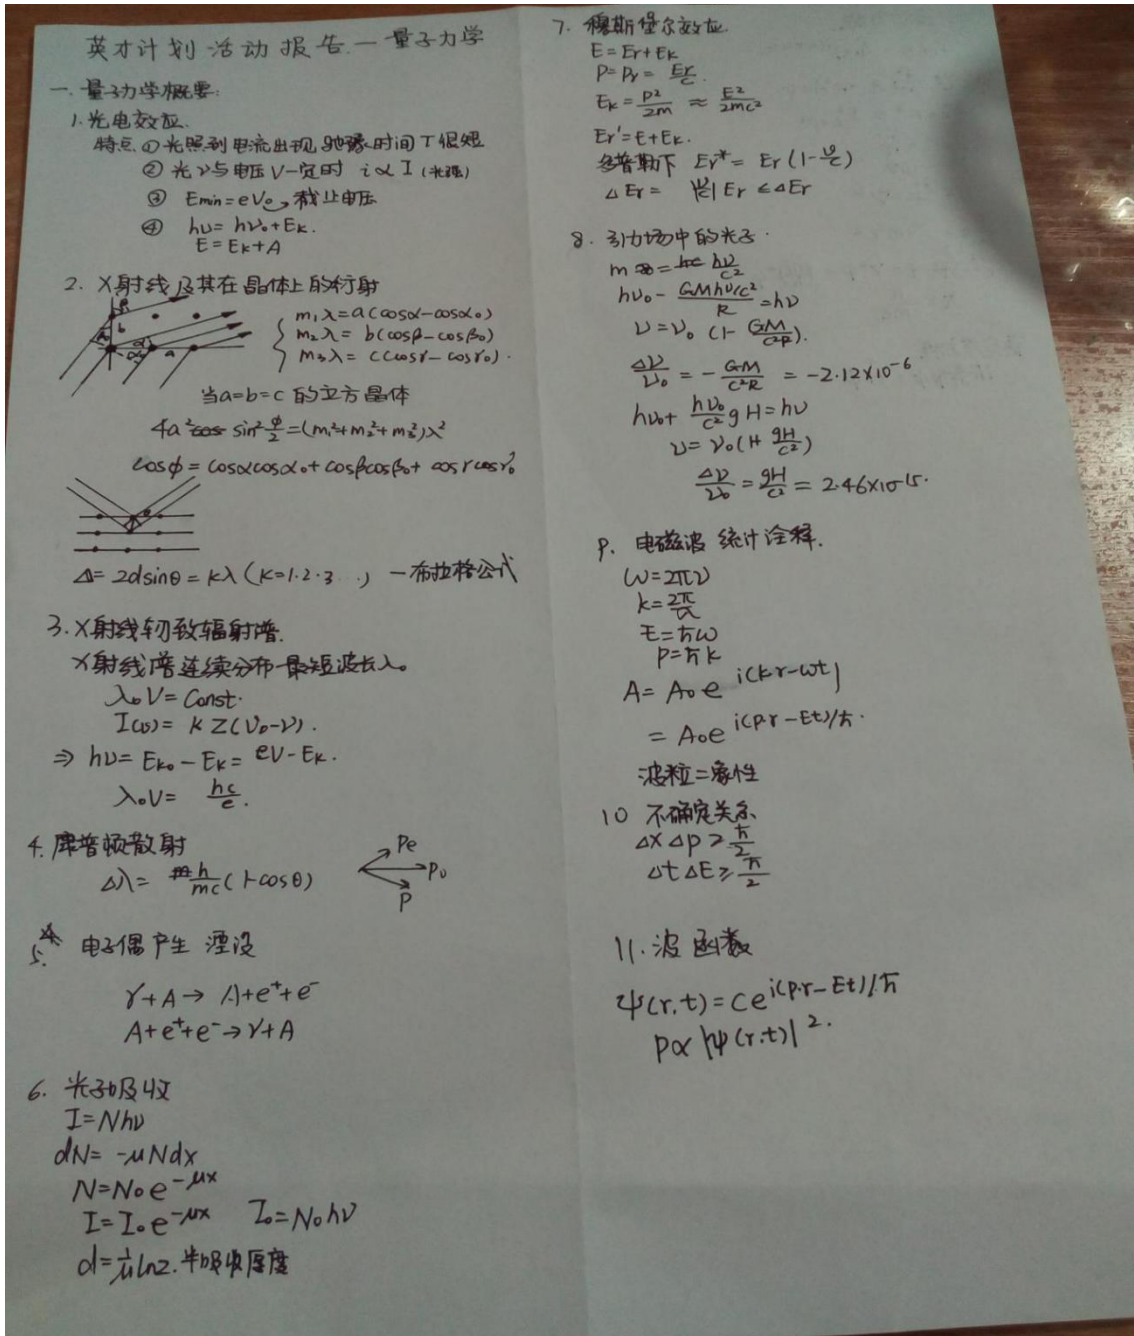 英才计划活动报告—量子力学
一.量子力学概要:
1.光电效应.
特点①光照到电流出现弛豫时间T很短
②光ν与电压V一定时 i∝I(光强)
③ Emin=eV₀→截止电压
④ hν=hν₀+Eₖ.
E=Eₖ+A
2. X射线及其在晶体上的衍射
β
b
α
a
m₁λ=a(cosα-cosα₀)
m₂λ=b(cosβ-cosβ₀)
m₃λ=c(cosγ-cosγ₀).
当a=b=c的立方晶体
4a²sin²φ/2=(m₁²+m₂²+m₃²)λ²
cosφ=cosαcosα₀+cosβcosβ₀+cosγcosγ₀
θ
Δ=2dsinθ=kλ(k=1.2.3...) —布拉格公式
3.X射线轫致辐射谱.
X射线谱连续分布-最短波长λ₀
λ₀V=Const.
I(ν)=kZ(ν₀-ν).
⇒ hν=Eₖ₀-Eₖ=eV-Eₖ.
λ₀V=hc/e.
4.康普顿散射
Δλ=h/mc(1-cosθ)
Pe
P₀
P
5. 电子偶产生 湮没
γ+A→A+e⁺+e⁻
A+e⁺+e⁻→γ+A
6. 光子吸收
I=Nhν
dN=-μNdx
N=N₀e^-μx
I=I₀e^-μx I₀=N₀hν
d=1/μ ln2.半吸收厚度
7. 穆斯堡尔效应.
E=Er+Eₖ
P=Pr=Er/c.
Eₖ=p²/2m≈E²/2mc²
Er'=E+Eₖ.
多普勒下 Er*=Er(1-υ/c)
ΔEr=|υ/c|Er≤ΔEr
8. 引力场中的光子.
m=hν/c²
hν₀-GMhν/c²/R=hν
ν=ν₀(1-GM/c²R).
Δν/ν₀=-GM/c²R=-2.12×10⁻⁶
hν₀+hν₀/c² gH=hν
ν=ν₀(1+gH/c²)
Δν/ν₀=gH/c²=2.46×10⁻¹⁵.
9. 电磁波 统计诠释.
ω=2πν
k=2π/λ
E=ℏω
P=ℏk
A=A₀e^i(k·r-ωt)
=A₀e^i(p·r-Et)/ℏ.
波粒二象性
10 不确定关系
ΔxΔp≥ℏ/2
ΔtΔE≥ℏ/2
11.波函数
ψ(r,t)=Ce^i(p·r-Et)/ℏ
P∝|ψ(r,t)|².